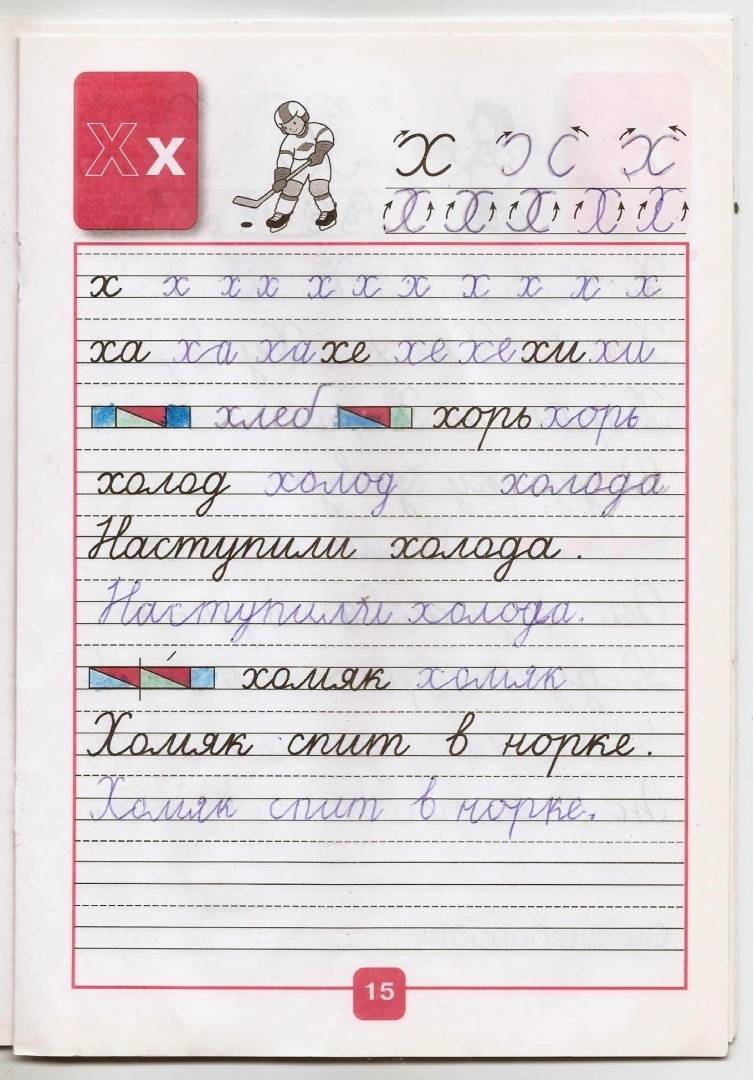 Х х
х х с х
х х х х х
х х х х х х х х х х х
ха ха ха хе хе хе хи хи
хлеб хорь хорь
холод холод холода
Наступили холода.
Наступили холода.
хомяк хомяк
Хомяк спит в норке.
Хомяк спит в норке.
15